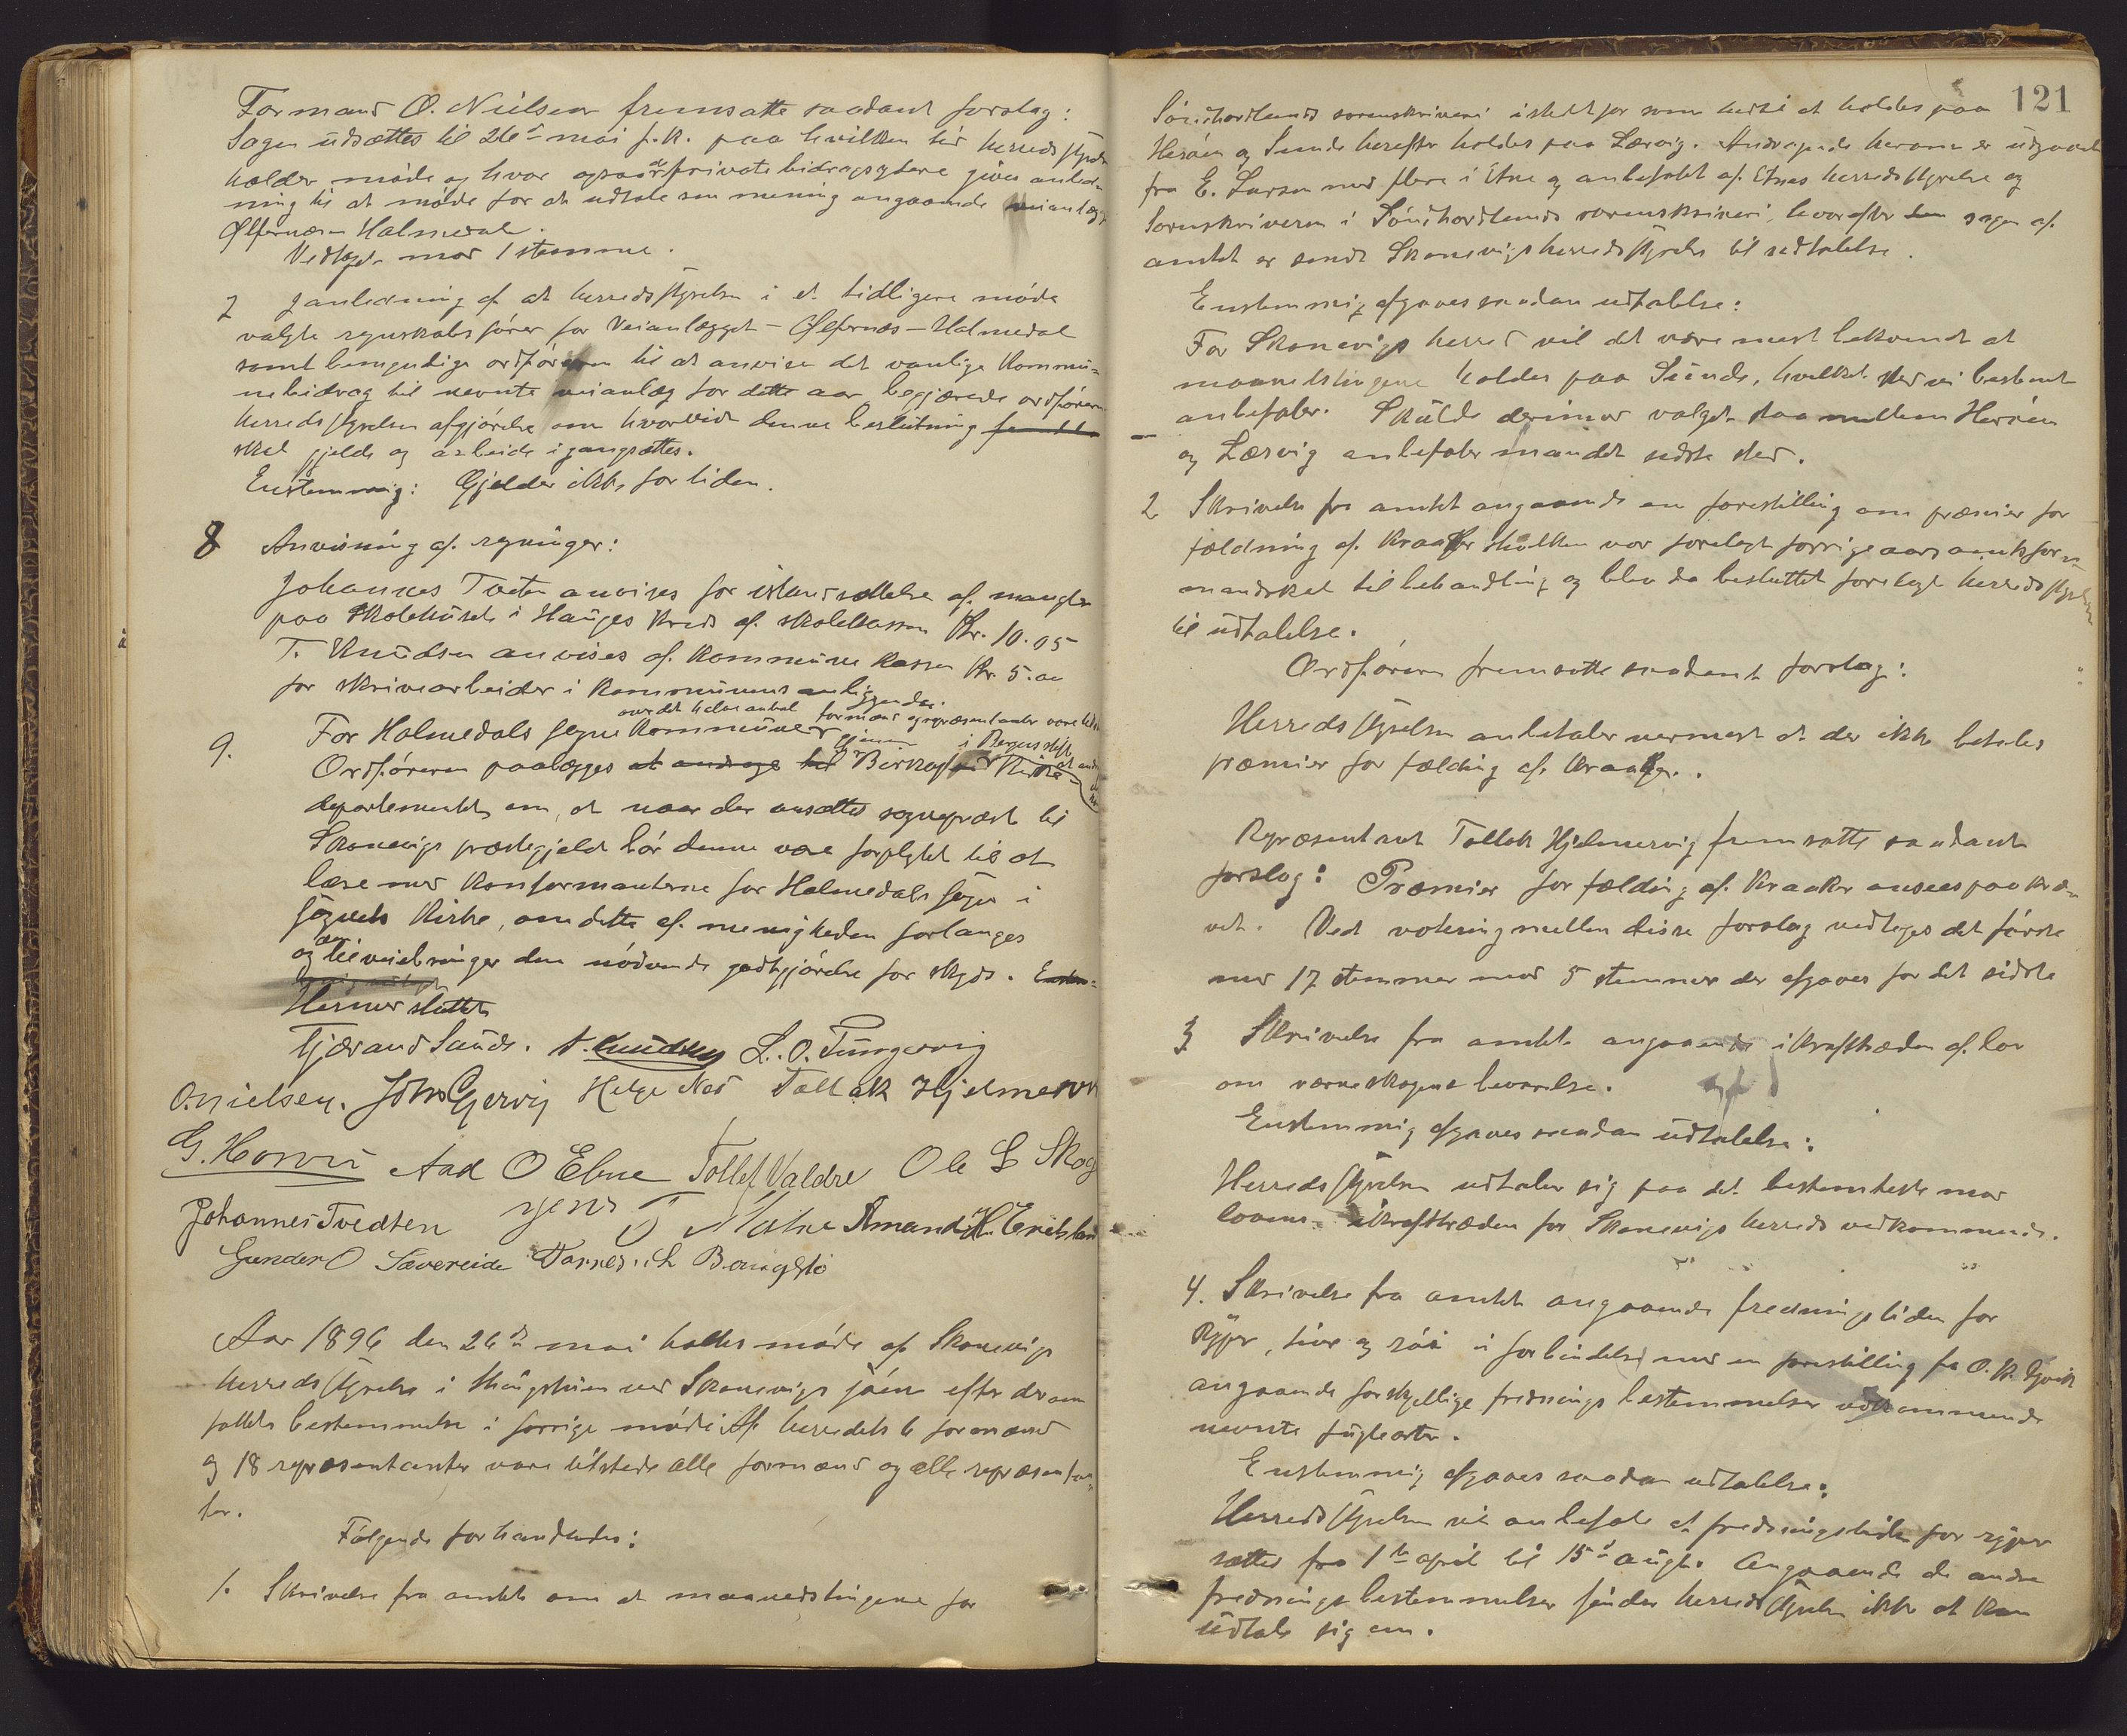 Formand O. Nielsen fremsatte saadant forslag:
Sagen udsættes til 26de mai f.k. paa hvilken tid herredsstyrelsen
holder møde og hvor ogsaa private bidragsydere gives anled-
ning til at møde for at udtale sin mening angaaende veianlægget
Ølfernæs-Halmedal.
Vedtaget mod 1 stemme.
7 I anledning af at herredsstyrelsen i et tidligere møde
valgte regnskabsfører for Veianlægget – Ølfernæs – Halmedal
samt bemyndige ordføreren til at anvise det vanlige Kommu-
nebidrag til nevnte veianlæg for dette aar begjærede ordføreren
herredsstyrelsens afgjørelse om hvorvidt denne beslutning
skal gjelde og arbeide igangsættes.
Enstemmig: Gjelder ikke for tiden.
8 Anvisning af regninger:
Johannes Tveten anvises for istandsættelse af mangler
paa Skolehuset i Hauges Kreds af skolekassen Kr. 10.05
T. Knudsen anvises af Kommune Kassen Kr. 5.00
for skrivearbeider i Kommunens anliggender.
over det halve antal formænd og repræsentanter vare tilstede
9. For Holmedals sogne Kommune
gjennem i Bergens stift
Ordføreren paalægges at andrage til Kirke
departementet om, at naar der ansættes sogneprest til
Skonevigs prestegjeld bør denne være forpligtet til at
læse med Konfirmanterne for Holmedals sogn i
sognets Kirke, om dette af menigheden forlanges
og tilveiebringer den nødvende godtgjørelse for skyds. Enstem-
Hermed sluttet
Tjærand Sunde. T. Knudsen L. O. Tungesvig
O. Nielsen. John Gjervig Helge Næs Tollak Hjelmervik
G. Horvei Aad O Ebne Tollef Valdre Ole L Skog
Johannes Tvedten Jens J Matre Amand H. Eriksen
Gunder O Sævereide Tarres. L Baugstø
Aar 1896 den 26de mai holdtes møde af Skonevigs
herredsstyrelse i thingstuen ved Skonevigs søen efter derom
fattet bestemmelse i forrige møde. Af herredets 6 formænd
og 18 repræsentanter vare tilstede alle formænd og alle repræsentan-
ter.
Følgende forhandledes:
1. Skrivelse fra amtet om at maanedstingene for
121
Søndhordlands sorenskriveri istedetfor som hidtil at holdes paa
Herøen og Sunde herefter holdes paa Lærvig. Andragende herom er udgaaet
fra E. Larsen med flere i Etne og anbefalet af Etnes herredsstyrelse og
Sorenskriveren i Søndhordlands sorenskriveri, hvorefter sagen af
amtet er sendt Skonevigs herredsstyrelse til udtalelse.
Enstemmig afgaves saadan udtalelse:
For Skonevigs herred vil det være mest bekvemt at
maanedstingene holdes paa Sunde, hvilket sted vi bestemt
anbefaler. Skulde derimod valget staa mellem Herøen
og Lærvig anbefaler man det sidste sted.
2 Skrivelse fra amtet angaaende en forestilling om præmier for
fældning af Kraaker hvilken var forelagt forrige aars amtsfor-
mandskab til behandling og blev da besluttet forelagt herredsstyrelserne
til udtalelse.
Ordføreren fremsatte saadant forslag:
Herredsstyrelsen anbefaler nærmest at der ikke betales
præmier for fælding af Kraaker.
Repræsentant Tollak Hjelmervig fremsatte saadant
forslag: Præmier for fælding af Kraaker ansees paakræ-
vet. Ved votering mellem disse forslag vedtoges det første
med 17 stemmer mod 5 stemmer der afgaves for det sidste
3 Skrivelse fra amtet angaaende ikrafttræden af lov
om værneskogens bevarelse.
Enstemmig afgaves saadan udtalelse:
Herredsstyrelsen udtaler sig paa det bestemteste mod
lovens ikrafttræden for Skonevigs herreds vedkommende.
4. Skrivelse fra amtet angaaende fredningstiden for
Ryper, tiur og røi i forbindelse med en forestilling fra O. K. Gjøvik
angaaende forskjellige frednings bestemmelser vedkommende
nevnte fuglearter.
Enstemmig afgaves saadan udtalelse:
Herredsstyrelsen vil anbefale at fredningstiden for ryper
sættes fra 1te april til 15de augt. Angaaende de andre
frednings bestemmelser finder herredsstyrelsen ikke at Kan
udtale sig om.